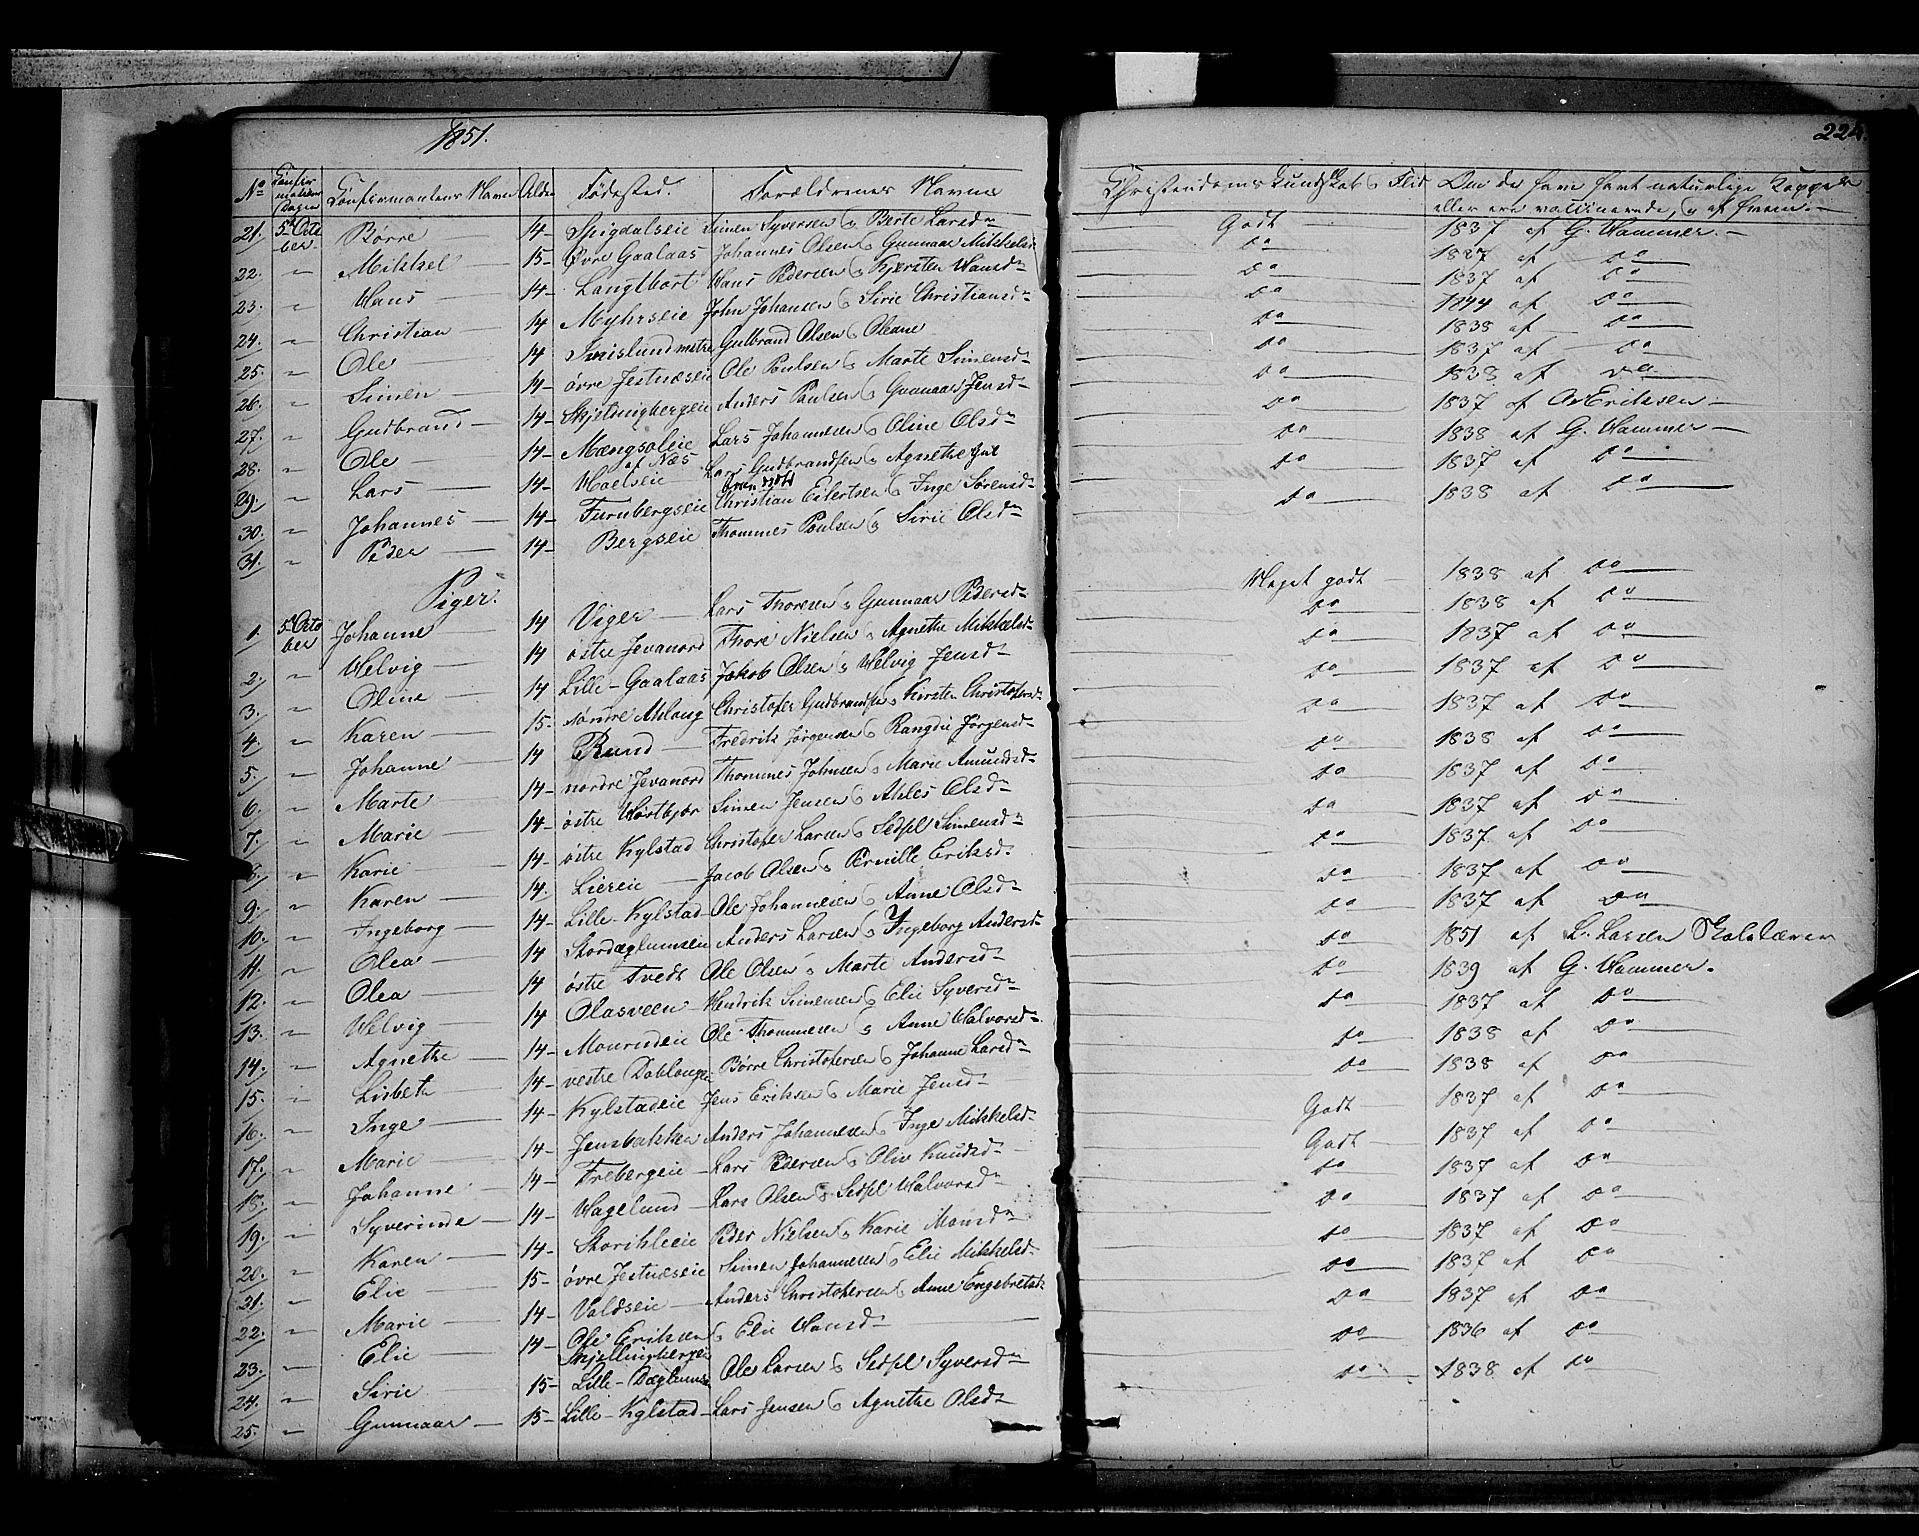 1851.
224.
No Confirmations Dagen Confirmantens Navn Alder Fødested. Forældrenes Navne Christendoms Kundskab & Flid Om de have havt naturlige Kopper eller ere vaccinerede, & af hvem.
21. 5te October Børre 14 Spigdalseie Simen Syversen & Berte Larsdn Godt 1837 af G. Hammer.
22. " Mikkel 15 Øvre Gaalaas Johannes Olsen & Gunnaar Mikkelsd Do 1837 af Do
23. " Hans 14 Langtbort Hans Pedersen & Kjersten Hansdn Do 1837 af Do
24. " Christian 14 Myhrseie John Johansen & Sirie Christiansdn Do 1844 af Do
25. " Ole 14 Smislund østre Gulbrand Olsen & Oleane Do 1838 af Do
26. " Simen 14 øvre Jestnæseie Ole Poulsen & Marte Simensdn Do 1837 af Do
27. " Gudbrand 14 Skjeldingbergeie Anders Poulsen & Gunnaar Jensdn Do 1838 af Do
28. " Ole 14 Mængsoleie af Næs Lars Johannesen & Oline Olsdn Do 1837 af O. Eriksen
29. " Lars 14 Hoelseie Lars Gudbrandsen & Agnethe Do 1838 af G. Hammer
30. " Johannes 14 Furubergseie Christian Eilertsen & Inge Sørensdn Do 1837 af Do
31. " Peder 14 Bergseie Thommes Poulsen & Sirie Olsdn Do 1838 af Do
Piger.
1. 5te October Johanne 14 Viger Lars Thoresen & Gunnaar Pedersdn Meget godt 1838 af Do
2. " Helvig 14 østre Jevanord Thore Nielsen & Agnethe Mikkelsdn Do 1838 af Do
3. " Oline 14 Lille-Gaalaas Jakob Olsen & Helvig Jensdn Do 1837 af Do
4. " Karen 15 nordre Ahlang Christofer Gudbrandsen & Kirsten Christofersdn Do 1837 af Do
5. " Johanne 14 Rund Fredrik Jørgensen & Rangdie Jørgensdn Do 1837 af Do
6. " Marte 14 nordre Jevanord Thommes Johnsen & Marie Amundsdn Do 1838 af Do
7. " Marie 14 østre Hørtbjør Simen Jensen & Ahles Olsdn Do 1837 af Do
8. " Karie 14 østre Kylstad Christofer Larsen & Sedsel Simensdn Do 1837 af Do
9. " Karen 14 Liereie Jacob Olsen & Pernille Eriksd. Do 1837 af Do
10. " Ingeborg 14 Lille-Kylstad Ole Johannesen & Anne Olsdn Do 1837 af Do
11. " Olea 14 Stordæglumseie Anders Larsen & Ingeborg Andersdn Do 1837 af Do
12. " Olea 14 østre Tvedt Ole Olsen & Marte Andersdn Do 1851 af L. Larsen Skolelærer
13. " Helvig 14 Olasveen Hendrik Simensen & Elie Syversdn Do 1839 af G. Hammer.
14. " Agnethe 14 Mourudeie Ole Thommesen & Anne Halvorsdn Do 1837 af Do
15. " Lisbeth 14 vestre Dobloug Børre Christofersen & Johanne Larsdn Do 1838 af Do
16. " Inge 14 Kylstadeie Jens Eriksen & Marie Jensdn Do 1838 af Do
17. " Marie 14 Jensbakken Anders Johannesen & Inge Mikkelsdn Godt 1837 af Do
18. " Johanne 14 Trebergeie Lars Pedersen & Olia Knudsdn Godt 1837 af Do
19. " Syverinde 14 Hagelund Lars Olsen & Sedsel Halvorsdn Do 1837 af Do
20. " Karen 14 Storihleeie Peder Nielsen & Karie Monsdn Do 1837 af Do
21. " Elie 15 øvre Jestnæseie Simen Johannesen & Elie Mikkelsdn Do 1837 af Do
22. " Marie 14 Voldseie Anders Christofersen & Anne Engebretsdn Do 1837 af Do
23. " Elie 14 Skjellingbergeie Ole Eriksen & Elie Hansdn Do 1837 af Do
24. " Sirie 15 Lille-Dæglum Ole Larsen & Sedsel Syversdn Do 1836 af Do
25. " Gunnaar 15 Lille-Kylstad Lars Jensen & Agnethe Olsdn Do 1838 af Do